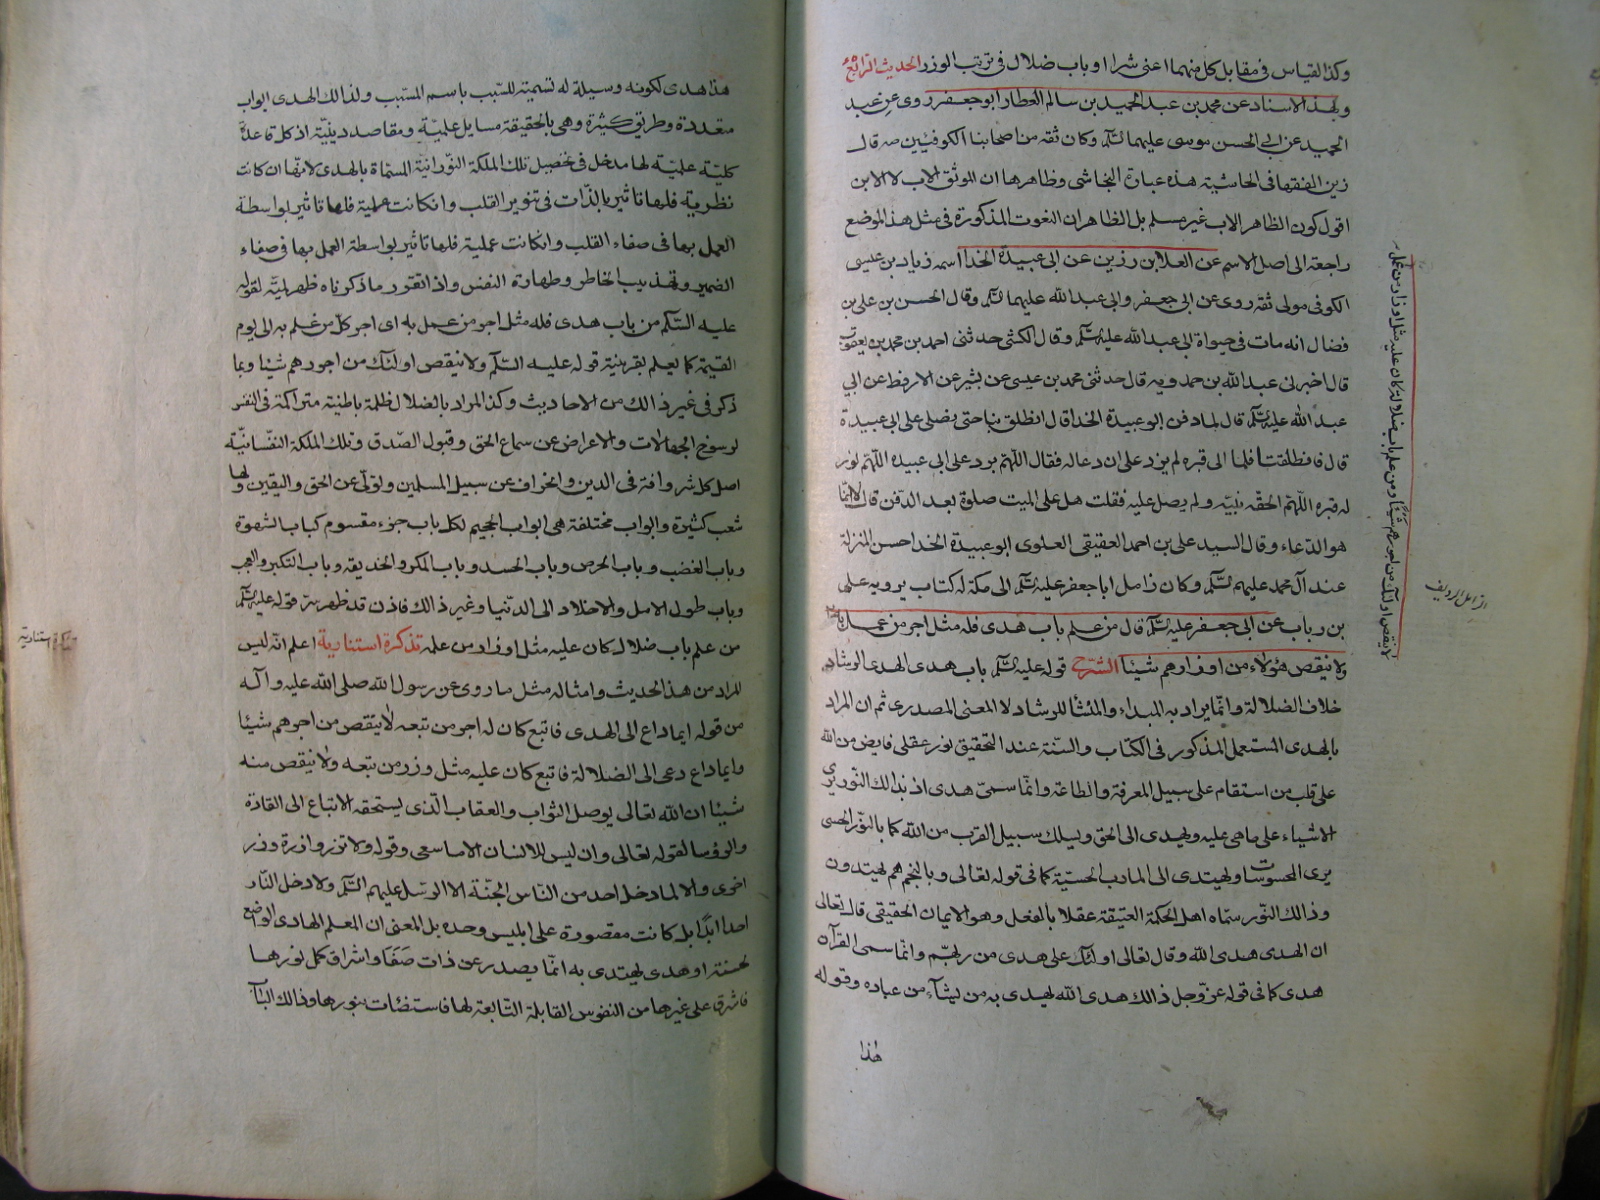 وكذا القياس فى مقابل كل منهما اعنى شرا او باب ضلال فى ترتب الوزر الحديث الرابع
وبهذا الاسناد عن محمد بن عبد الحميد بن سالم العطار ابو جعفر روى عن عبد
الحميد عن ابى الحسن موسى عليهما السلم وكان ثقه من اصحابنا الكوفيين صه قال
زين الفقها فى الحاشية هذه عبارة النجاشى وظاهرها ان الموثق الاب لا الابن
اقول كون الظاهر الاب غير مسلم بل الظاهر ان النعوت المذكورة فى مثل هذا الموضع
راجعة الى اصل الاسم عن العلا بن رزين عن ابى عبيدة الحذا اسمه زياد بن عيسى
الكوفى مولى ثقه روى عن ابى جعفر وابى عبد الله عليهما السلم وقال الحسن بن على بن
فضال انه مات فى حيوة ابى عبد الله عليه السلم وقال الكشى حدثنى احمد بن محمد بن يعقوب
قال اخبرنى عبد الله بن حمدويه قال حدثنى محمد بن عيسى عن بشير عن الارقط عن ابى
عبد الله عليه السلم قال لما دفن ابو عبيدة الحذا قال انطلق بنا حتى نصلى على ابى عبيدة
قال فانطلقنا فلما الى قبره لم يزد على ان دعا له فقال اللهم برد على ابى عبيده اللهم نور
له قبره اللهم الحقه بنبيه ولم يصل عليه فقلت هل على الميت صلوة بعد الدفن قال لا انما
هو الدعاء وقال السيد على بن احمد العقيقى العلوى ابو عبيدة الحذا حسن المنزلة
عند آل محمد عليهم السلم وكان زامل ابا جعفر عليه السلم الى مكة له كتاب يرويه على
بن رباب عن ابى جعفر عليه السلم قال من علم باب هدى فله مثل اجر من عمل به
ولا ينقص هؤلاء من اوزارهم شيئا الشرح قوله عليه السلم باب هدى الهدى الرشاد
خلاف الضلالة وانما يراد به المبداء والمنشأ للرشاد لا المعنى المصدرى ثم ان المراد
بالهدى المستعمل المذكور فى الكتاب والسنة عند التحقيق نور عقلى فايض من الله
على قلب من استقام على سبيل المعرفة والطاعة وانما سمى هدى اذ بذلك النور يرى
الاشياء على ما هى عليه ويهدى الى الحق ويسلك سبيل القرب من الله كما بالنور الحسى
يرى المحسوسات ويهتدى الى المآرب الحسية كما فى قوله تعالى وبالنجم هم يهتدون
وذالك النور سماه اهل الحكمة العتيقة عقلا بالفعل وهو الايمان الحقيقى قال تعالى
ان الهدى هدى الله وقال تعالى اولئك على هدى من ربهم وانما سمى القرآن
هدى كما فى قوله عز وجل ذالك هدى الله يهدى به من يشآء من عباده وقوله
هذا
لا ينقص اولئك من اجورهم شيئا ومن علم باب ضلالة كان عليه مثل اوزار من عمل به
الزامل الرديف
هذا هدى لكونه وسيلة له تسمية للسبب باسم المسبب ولذالك الهدى ابواب
متعددة وطريق كثيرة وهى بالحقيقة مسايل علمية ومقاصد دينية اذ كل قاعدة
كلية علمية لها مدخل فى تحصيل تلك الملكة النورانية المسماة بالهدى لانها ان كانت
نظرية فلها تاثير بالذات فى تنوير القلب وانكانت عملية فلها تاثير بواسطة
العمل بها فى صفاء القلب وانكانت عملية فلها تاثير بواسطة العمل بها فى صفاء
الضمير وتهذيب الخاطر وطهارة النفس واذا تقرر ما ذكرناه ظهر لمية لقوله
عليه السلم من باب هدى فله مثل اجر من عمل به اى اجر كل من عمل به الى يوم
القيمة كما يعلم بقرينة قوله عليه السلم ولا ينقص اولئك من اجورهم شيئا وبما
ذكر فى غير ذالك من الاحاديث وكذا المراد بالضلال ظلمة باطنية متراكمة فى النفس
لرسوخ الجهالات والاعراض عن سماع الحق وقبول الصدق وتلك الملكة النفسانية
اصل كل شر وآفة فى الدين وانحراف عن سبيل المسلمين وتولى عن الحق واليقين ولها
شعب كثيرة وابواب مختلفة هى ابواب الجحيم لكل باب جزء مقسوم كباب الشهوة
وباب الغضب وباب الحرص وباب الحسد وباب المكر والخديعه وباب التكبر والعجب
وباب طول الامل والاخلاد الى الدنيا وغير ذالك فاذن قد ظهر سر قوله عليه السلم
من علم باب ضلال كان عليه مثل اوزار من علمه تذكرة استنارية اعلم انه ليس
المراد من هذا الحديث وامثاله مثل ما روى عن رسول الله صلى الله عليه وآله
من قوله ايما داع الى الهدى فاتبع كان له اجر من تبعه لا ينقص من اجوهم شيئا
وايما داع دعى الى الضلالة فاتبع كان عليه مثل وزر من تبعه ولا ينقص منه
شيئا ان الله تعالى يوصل الثواب والعقاب الذى يستحقه الاتباع الى القادة
والرؤسا لقوله تعالى وان ليس للانسان الا ما سعى وقوله ولا تزر وازرة وزر
اخرى والا لما دخل احد من الناس الجنة الا الرسل عليهم السلم ولا دخل النار
احدا ابدا بل كانت مقصورة على ابليس وحده بل المعنى ان المعلم الهادى الواضع
لحسنة او هدى يهتدى به انما يصدر عن ذات صفا واشراق كمل نورها
فاشرق على غيرها من النفوس القابلة التابعة لها فاستضئات بنورها وذالك البنآ
تذكرة استنارية